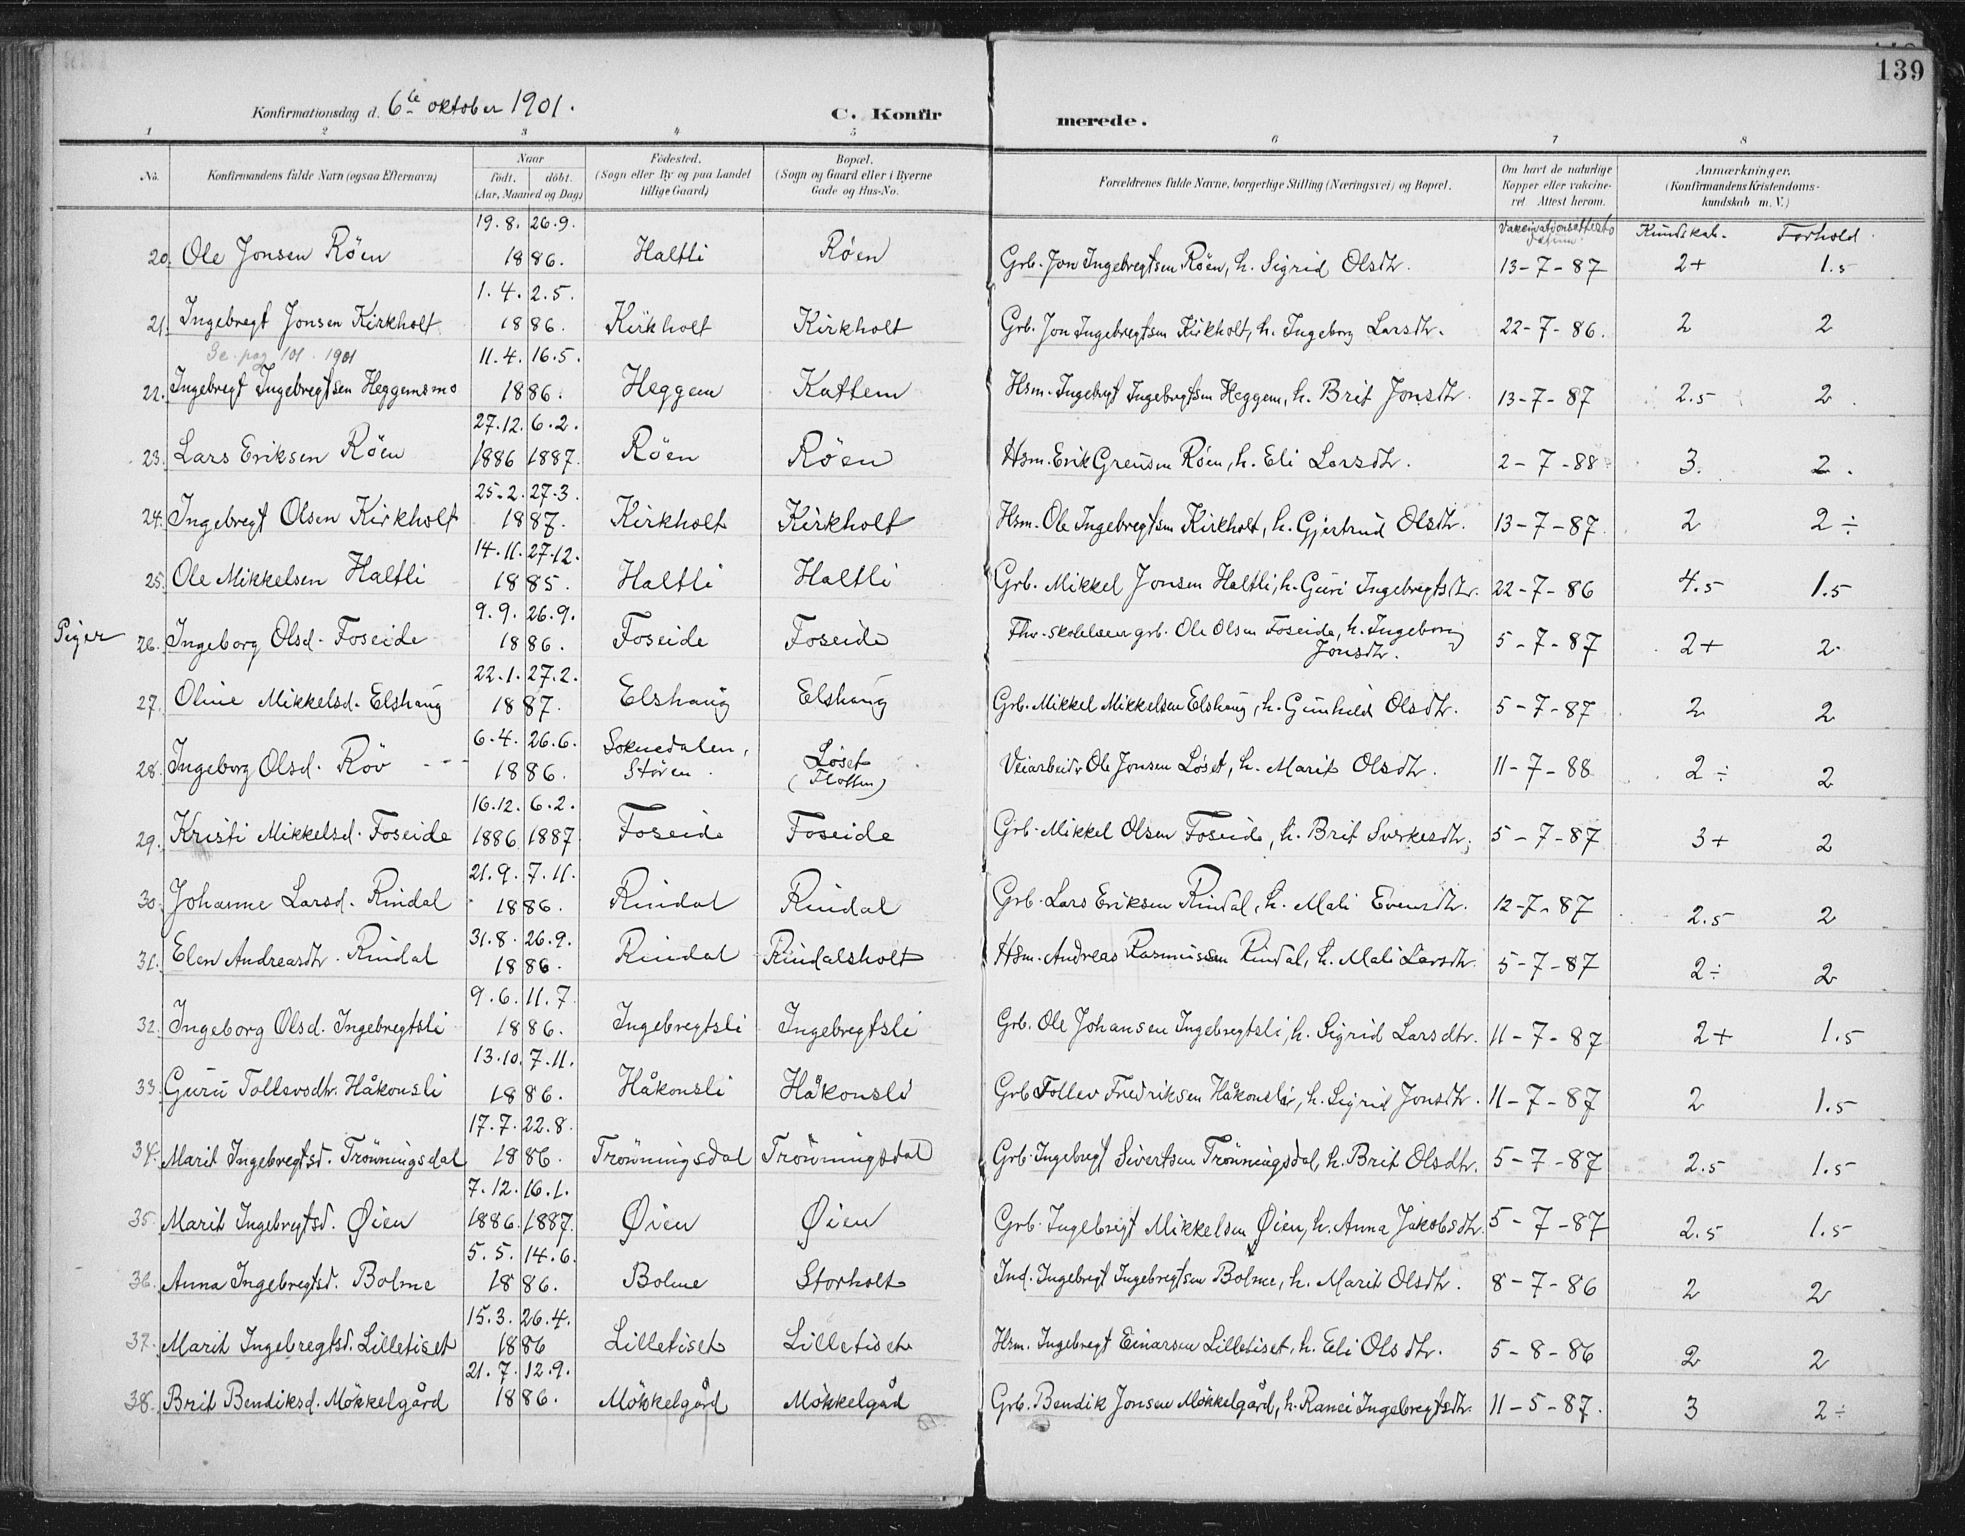 139
Konfirmationsdag d. 6te oktober 1901.
C. Konfirmerede.
1 2 3 4 5 6 7 8
No. Konfirmandens fulde Navn (ogsaa Efternavn) Naar født. døbt. (Aar, Maaned og Dag) Fødested. (Sogn eller By og paa Landet tillige Gaard) Bopæl. (Sogn og Gaard eller i Byerne Gade og Hus-No. Forældrenes fulde Navne, borgerlige Stilling (Næringsvei) og Bopæl. Om havt de naturlige Kopper eller vakcineret Attest herom. Anmærkninger. (Konfirmandens Kristendomskundskab m. V.)
Vakcinationsattests datum. Kundskab. Forhold.
20. Ole Jonsen Röen 19.8. 26.9. 1886. Haltli Röen Grb. Jon Ingebregtsen Röen, h. Sigrid Olsdtr. 13-7-87 2+ 1.5
21. Ingebregt Jonsen Kirkholt 1.4. 2.5. 1886. Kirkholt Kirkholt Grb. Jon Ingebregtsen Kirkholt, h. Ingeborg Larsdtr. 22-7-86. 2 2
Se pag 101 1901
22. Ingebregt Ingebregtsen Heggemsmo 11.4. 16.5. 1886. Heggem Kattem Hsm. Ingebregt Ingebregtsen Heggem, h. Brit Jonsdtr. 13-7-87 2.5 2
23. Lars Eriksen Röen 27.12. 6.2. 1886 1887. Röen Röen Hsm. Erik Röen, h. Eli Larsdtr. 2-7-88 3. 2.
24. Ingebregt Olsen Kirkholt 25.2. 27.3. 1887. Kirkholt Kirkholt Hsm. Ole Ingebregtsen Kirkholt, h. Gjertrud Olsdtr. 13-7-87. 2 2÷
25. Ole Mikkelsen Haltli 14.11. 27.12. 1885. Haltli Haltli Grb. Mikkel Jonsen Haltli, h. Guri Ingebregtsdtr. 22-7-86 4.5 1.5
Piger
26. Ingeborg Olsd. Foseide 9.9. 26.9. 1886. Foseide Foseide Fhv. grb. Ole Olsen Foseide, h. Ingeborg Jonsdtr. 5-7-87 2+ 2
27. Oline Mikkelsd. Elshaug 22.1. 27.2. 1887. Elshaug Elshaug Grb. Mikkel Mikkelsen Elshaug, h. Gunhild Olsdtr. 5-7-87 2 2
28. Ingeborg Olsd. Röv 6.4. 26.6. 1886. Soknedalen, Stören. Löset (Flotten) Veiarbeider Ole Jonsen Löset, h. Marit Olsdtr. 11-7-88 2÷ 2
29. Kristi Mikkelsd. Foseide 16.12. 6.2. 1886 1887 Foseide Foseide Grb. Mikkel Olsen Foseide, h. Brit Sverkesdtr. 5-7-87 3+ 2
30. Johanne Larsd. Rindal 21.9. 7.11. 1886. Rindal Rindal Grb. Lars Eriksen Rindal, h. Mali Evensdtr. 12-7-87 2.5 2
31. Elen Andreasdtr. Rindal 31.8. 26.9. 1886. Rindal Rindalsholt Hsm. Andreas Rasmussen Rindal, h. Mali Larsdtr. 5-7-87 2÷ 2
32. Ingeborg Olsd. Ingebregtsli 9.6. 11.7. 1886. Ingebregtsli Ingebregtsli Grb. Ole Johansen Ingebregtsli, h. Sigrid Larsdtr. 11-7-87 2+ 1.5
33. Guru Tollevsdtr. Håkonsli 13.10. 7.11. 1886. Håkonsli Håkonsli Grb Tollev Fredriksen Håkonsli, h. Sigrid Jonsdtr. 11-7-87 2 1.5
34. Marit Ingebregtsd. Trönningsdal 17.7. 22.8. 1886. Trönningsdal Trönningsdal Grb. Ingebregt Sivertsen Trönningsdal, h. Brit Olsdtr. 5-7-87 2.5 1.5
35. Marit Ingebregtsd. Øien 7.12. 16.1. 1886. 1887. Øien Øien Grb. Ingebregt Mikkelsen Øien, h. Anna Jakobsdtr. 5-7-87 2.5 1.5
36. Anna Ingebregtsd. Bolme 5.5. 14.6. 1886. Bolme Storholt Ind. Ingebregt Ingebregtsen Bolme, h. Marit Olsdtr. 8-7-86 2 2
37. Marit Ingebregtsd. Lilletiset 15.3. 26.4. 1886 Lilletiset Lilletiset Hsm. Ingebregt Einarsen Lilletiset, h. Eli Olsdtr. 5-8-86 2 2
38. Brit Bendiksd. Mökkelgård 21.7. 12.9. 1886. Mökkelgård Mökkelgåd Grb. Bendik Jonsen Mökkelgård, h. Ranei Ingebregtsdtr. 11-5-87. 3 2÷